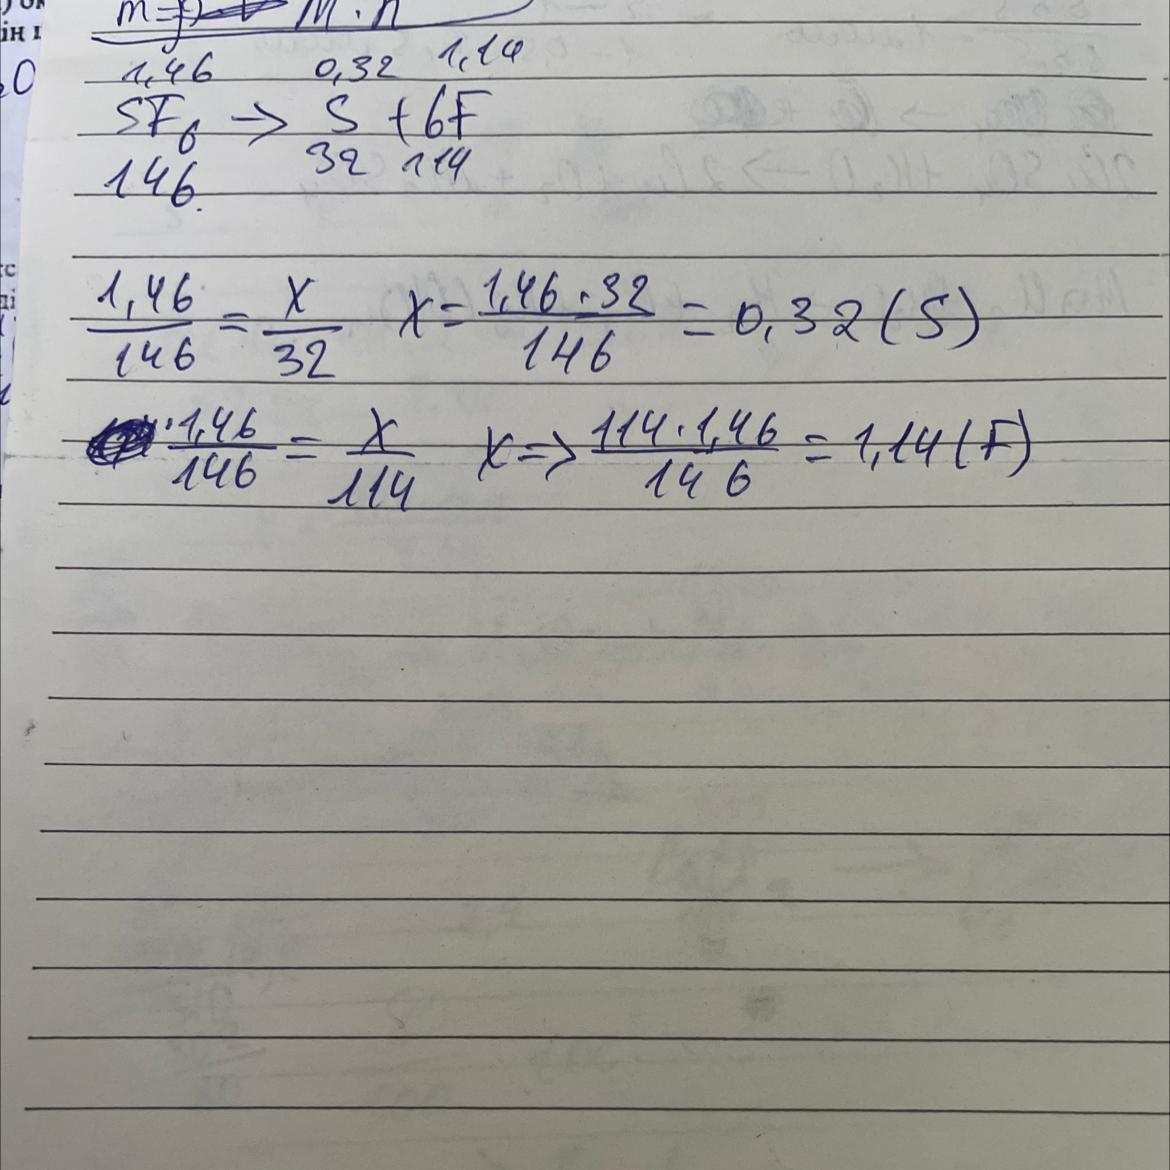 m = M · n
1,46 0,32 1,14
SF₆ → S + 6F
146 32 114
1,46/146 = x/32 x = 1,46·32/146 = 0,32 (S)
1,46/146 = x/114 x => 114·1,46/146 = 1,14 (F)